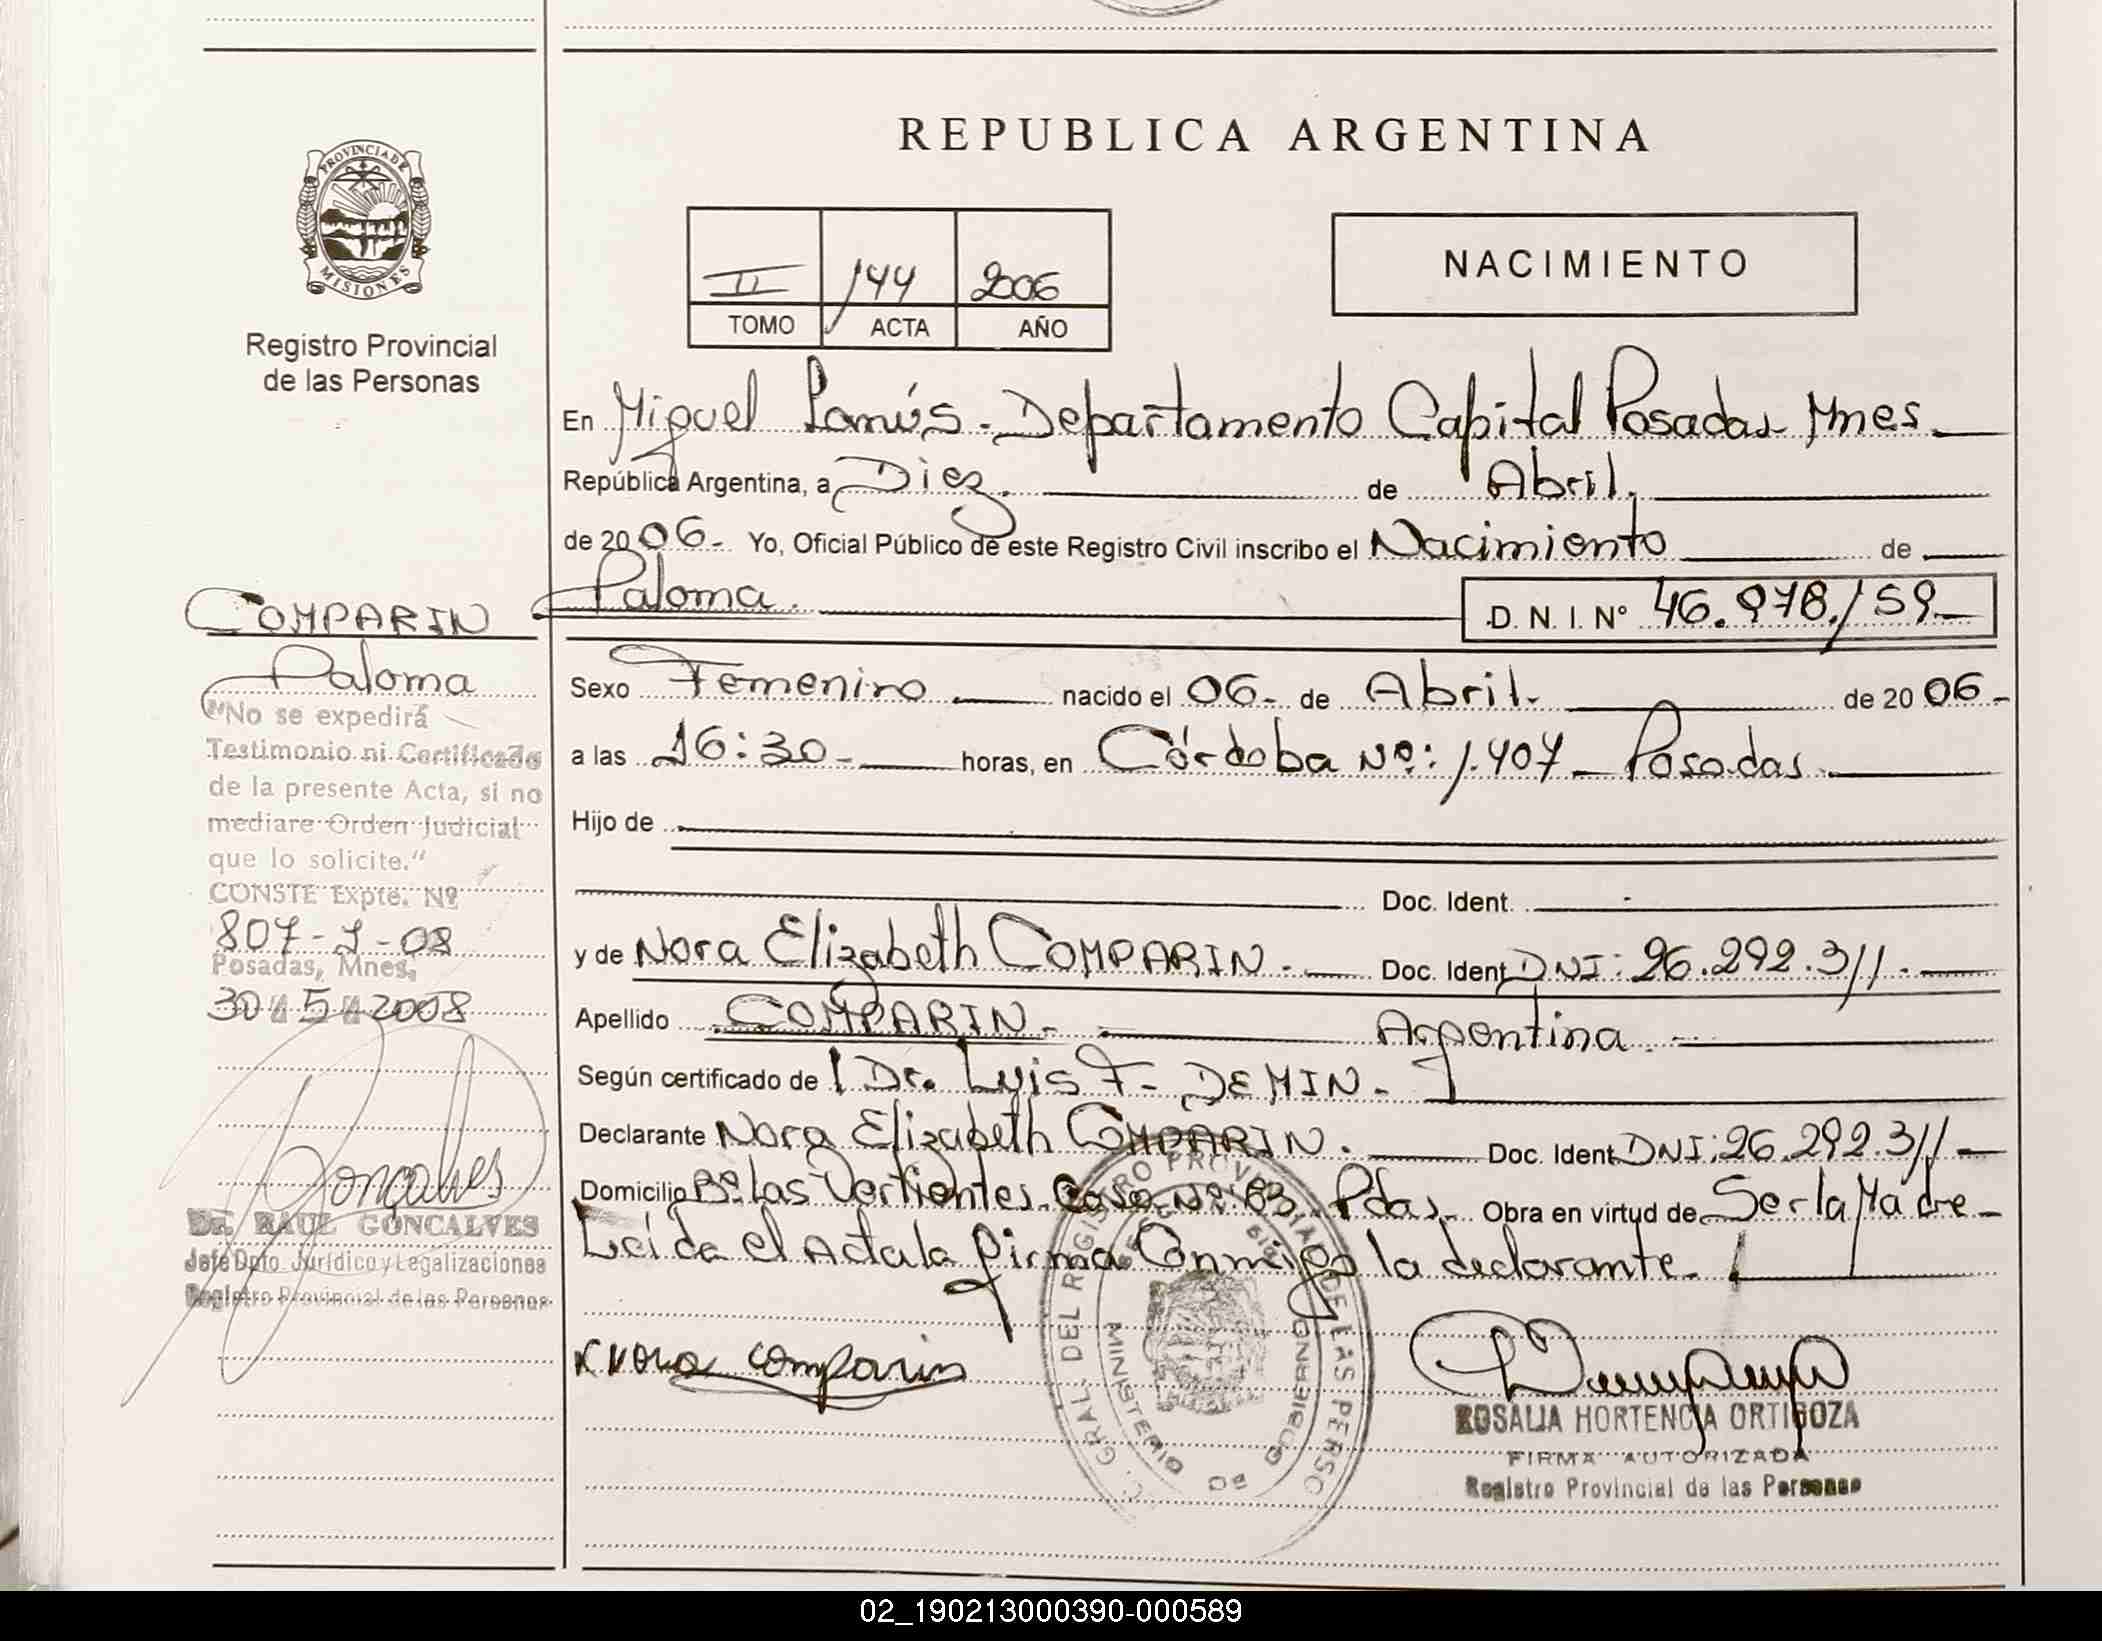 REPUBLICA ARGENTINA
PROVINCIA DE
MISIONES
Registro Provincial
de las Personas
II 144 2006
TOMO ACTA AÑO
NACIMIENTO
En Miguel Lanús - Departamento Capital Posadas Mnes
República Argentina, a Diez. de Abril.
de 2006 - Yo, Oficial Público de este Registro Civil inscribo el Nacimiento de
Paloma. D. N. I. N°
Sexo Femenino nacido el 06 - de Abril. de 2006 -
a las 16:30 - horas, en Córdoba Nº: 1.407 - Posadas.
Hijo de
Doc. Ident.
y de Nora Elizabeth COMPARIN. Doc. Ident. DNI: 26.292.311.
Apellido COMPARIN. Argentina.
Según certificado de Dr. Luis F. DEMIN -
Declarante Nora Elizabeth COMPARIN. Doc. Ident. DNI: 26.292.311
Domicilio Bº. Las Vertientes Casa Nº 63 Pdas. Obra en virtud de Ser la Madre -
Leída el Acta la firma Conmigo la declarante.
Nora Comparin
ROSALIA HORTENCIA ORTIGOZA
FIRMA AUTORIZADA
Registro Provincial de las Personas
COMPARIN
Paloma
"No se expedirá
Testimonio ni Certificado
de la presente Acta, si no
mediare Orden Judicial
que lo solicite."
CONSTE Expte. Nº
Posadas, Mnes,
30 5 2008
Gonçalves
Dr. RAUL GONCALVES
Jefe Dpto. Jurídico y Legalizaciones
Registro Provincial de las Personas
GRAL. DEL REGISTRO PROVINCIAL DE LAS PERSO
MINISTERIO DE GOBIERNO
02_190213000390-000589